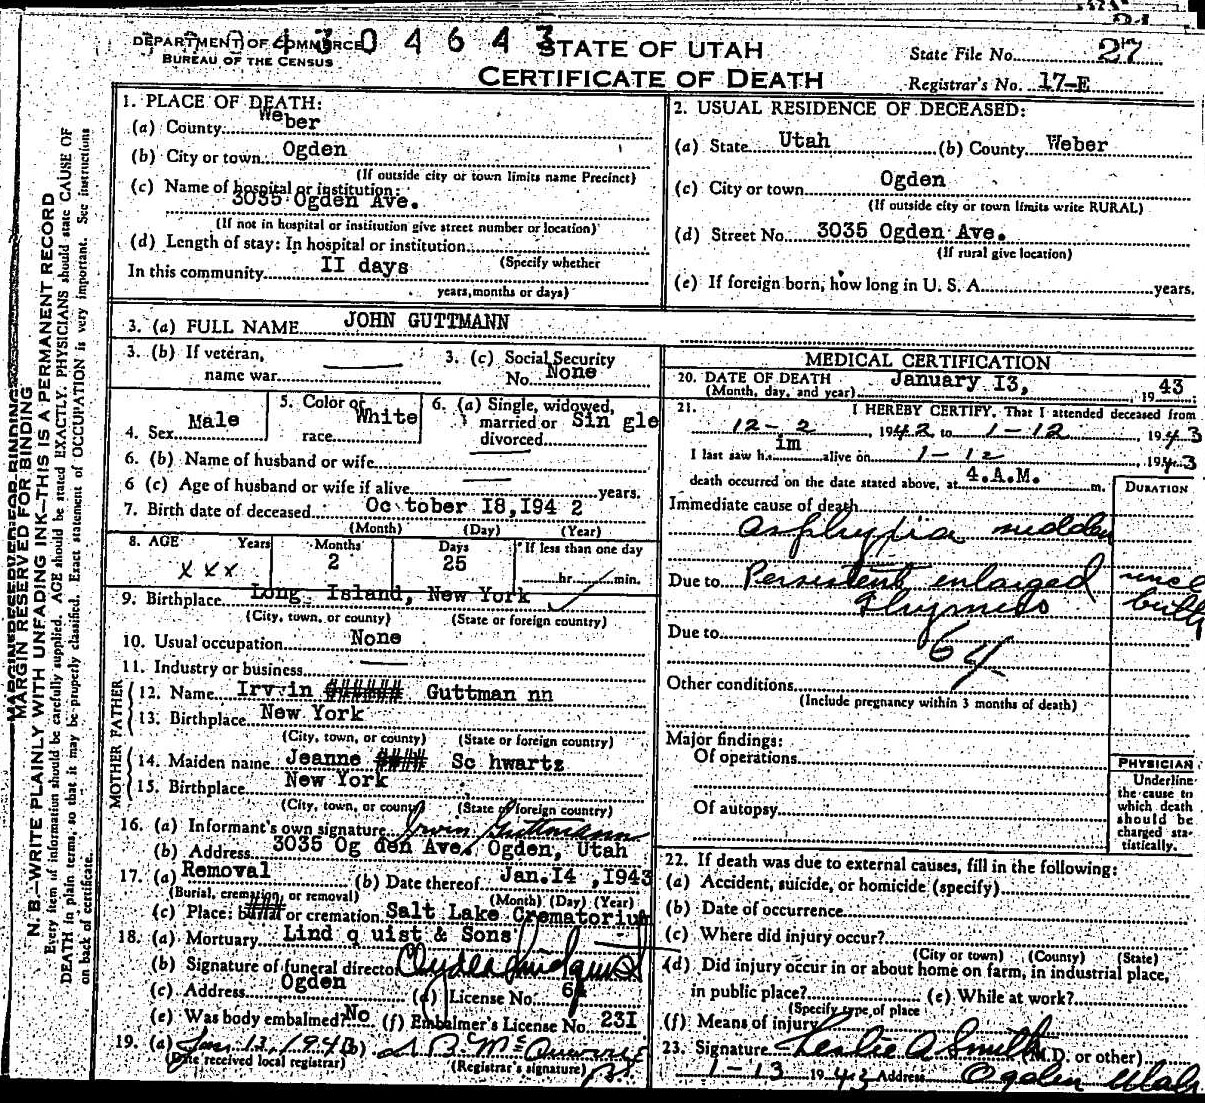 DEPARTMENT OF COMMERCE
BUREAU OF THE CENSUS
0 4 3 0 4 6 4 3
STATE OF UTAH
CERTIFICATE OF DEATH
State File No. 27
Registrar's No. 17-E
MARGIN RESERVED FOR BINDING
N. B.—WRITE PLAINLY WITH UNFADING INK—THIS IS A PERMANENT RECORD
Every item of information should be carefully supplied. AGE should be stated EXACTLY. PHYSICIANS should state CAUSE OF
DEATH in plain terms, so that it may be properly classified. Exact statement of OCCUPATION is very important. See instructions
on back of certificate.
1. PLACE OF DEATH:
(a) County Weber
(b) City or town Ogden
(If outside city or town limits name Precinct)
(c) Name of hospital or institution:
3035 Ogden Ave.
(If not in hospital or institution give street number or location)
(d) Length of stay: In hospital or institution
(Specify whether
In this community II days
years, months or days)
2. USUAL RESIDENCE OF DECEASED:
(a) State Utah (b) County Weber
(c) City or town Ogden
(If outside city or town limits write RURAL)
(d) Street No. 3035 Ogden Ave.
(If rural give location)
(e) If foreign born, how long in U. S. A. years.
3. (a) FULL NAME JOHN GUTTMANN
3. (b) If veteran,
name war
3. (c) Social Security
No. None
4. Sex Male
5. Color or
race White
6. (a) Single, widowed,
married or Sin gle
divorced
6. (b) Name of husband or wife
6 (c) Age of husband or wife if alive years.
7. Birth date of deceased Oc tober I8,194 2
(Month) (Day) (Year)
8. AGE Years Months Days If less than one day
XXX 2 25 hr. min.
9. Birthplace Long Island, New York
(City, town, or county) (State or foreign country)
10. Usual occupation None
11. Industry or business
FATHER
12. Name Irvin ###### Guttman nn
13. Birthplace New York
(City, town, or county) (State or foreign country)
MOTHER
14. Maiden name Jeanne #### Sc hwartz
15. Birthplace New York
(City, town, or county) (State or foreign country)
16. (a) Informant's own signature Irwin Guttmann
(b) Address 3035 Og den Ave. Ogden, Utah
17. (a) Removal (b) Date thereof Jan.I4 ,1943
(Burial, cremation, or removal) (Month) (Day) (Year)
(c) Place: burial or cremation Salt Lake Crematorium
18. (a) Mortuary Lind q uist & Sons
(b) Signature of funeral director
(c) Address Ogden (d) License No.
(e) Was body embalmed? No (f) Embalmer's License No. 23I
19. (a) Jan. 13, 1943 (b)
(Date received local registrar) (Registrar's signature)
MEDICAL CERTIFICATION
20. DATE OF DEATH January I3, 19 43
(Month, day, and year)
21. I HEREBY CERTIFY, That I attended deceased from
12-2, 1942 to 1-12, 1943
I last saw h im alive on 1-12, 1943
death occurred on the date stated above, at 4.A.M. m.
DURATION
Immediate cause of death
Asphyxia sudden
Due to Persistent enlarged since
Thymus birth
Due to
64
Other conditions
(Include pregnancy within 3 months of death)
Major findings:
Of operations
Of autopsy
PHYSICIAN
Underline
the cause to
which death
should be
charged sta-
tistically.
22. If death was due to external causes, fill in the following:
(a) Accident, suicide, or homicide (specify)
(b) Date of occurrence
(c) Where did injury occur?
(City or town) (County) (State)
(d) Did injury occur in or about home on farm, in industrial place,
in public place? (e) While at work?
(Specify type of place
(f) Means of injury
23. Signature Leslie A Smith (M.D. or other)
1-13 1943 Address Ogden Utah